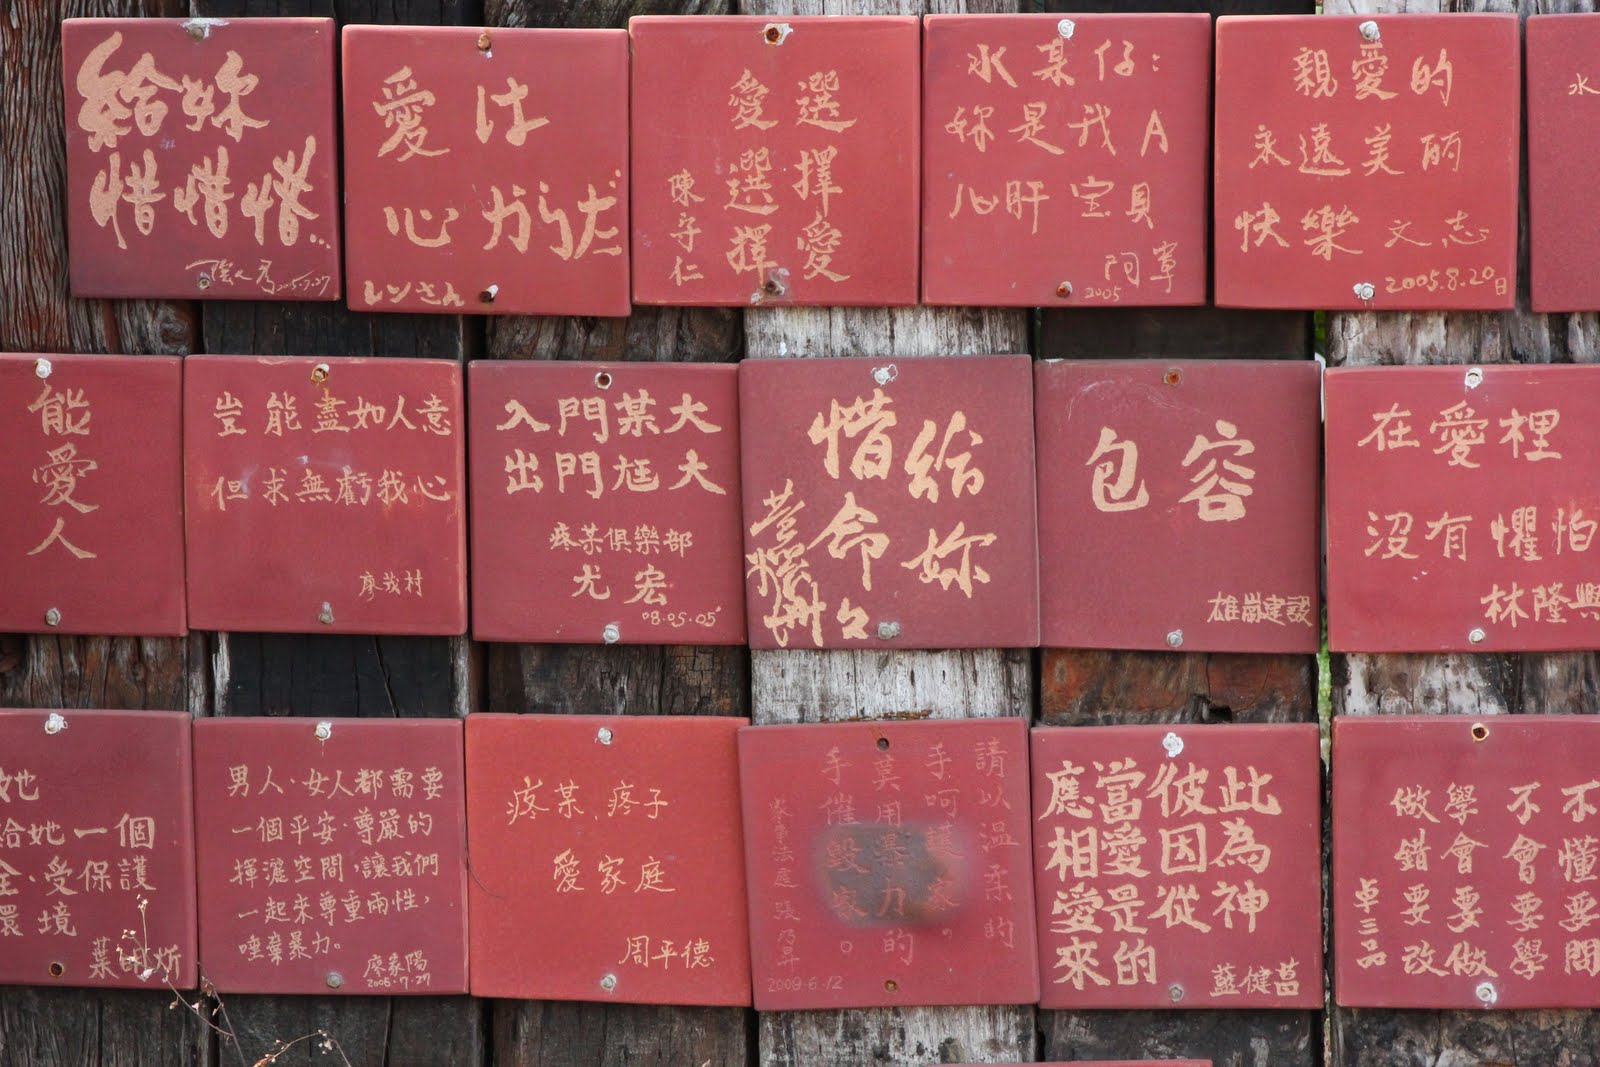 給妳
惜惜惜...
愛は
心がらだ
レンさん
選擇愛
愛選擇
陳守仁
水某仔:
妳是我A
心肝宝貝
阿草
2005
親愛的
永遠美丽
快樂 文志
2005.8.20日
水
能
愛
人
豈能盡如人意
但求無虧我心
廖我村
入門某大
出門尪大
疼某俱樂部
尤宏
08.05.05
給妳
惜命命
包容
雄崗建設
在愛裡
沒有懼怕
林隆興
給她一個
全、受保護
環境
葉明炘
男人、女人都需要
一個平安、尊嚴的
揮灑空間,讓我們
一起來尊重兩性,
唾棄暴力。
廖家陽
2005.7.27
疼某、疼子
愛家庭
周平德
請以溫柔的
手呵護家。
莫用暴力的
手催毀家。
2009.6.12
此為神
彼因從
當愛是的
應相愛來
藍健菖
不懂要問
不會要學
學會要做
做錯要改
卓三品